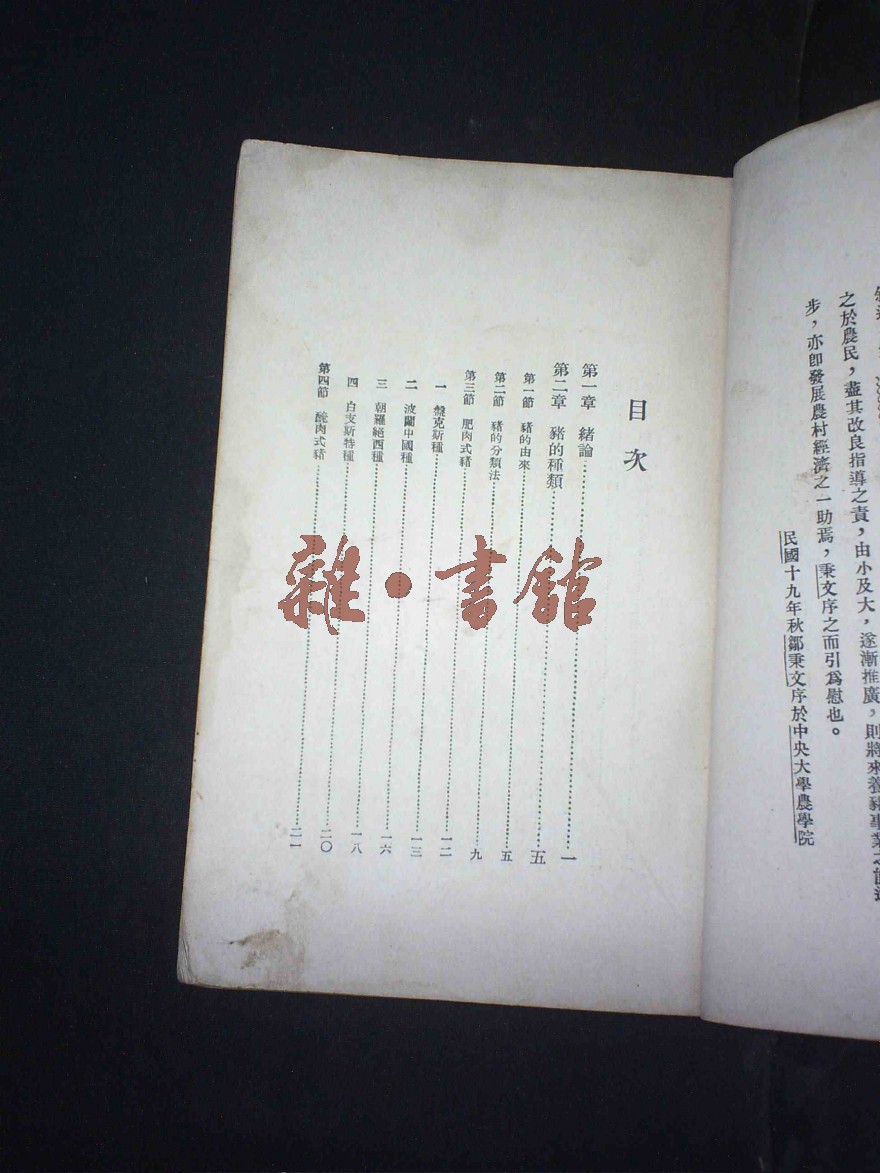 之於農民，盡其改良指導之責，由小及大，遂漸推廣，則將來養豬事業之
步，亦卽發展農村經濟之一助焉，秉文序之而引爲慰也。
民國十九年秋鄒秉文序於中央大學農學院
目次
第一章 緒論……一
第二章 豬的種類……五
第一節 豬的由來……五
第二節 豬的分類法……九
第三節 肥肉式豬……一二
一 盤克斯種……一三
二 波蘭中國種……一六
三 朝羅絕西種……一八
四 白支斯特種……二〇
第四節 醃肉式豬……二一
雜·書館